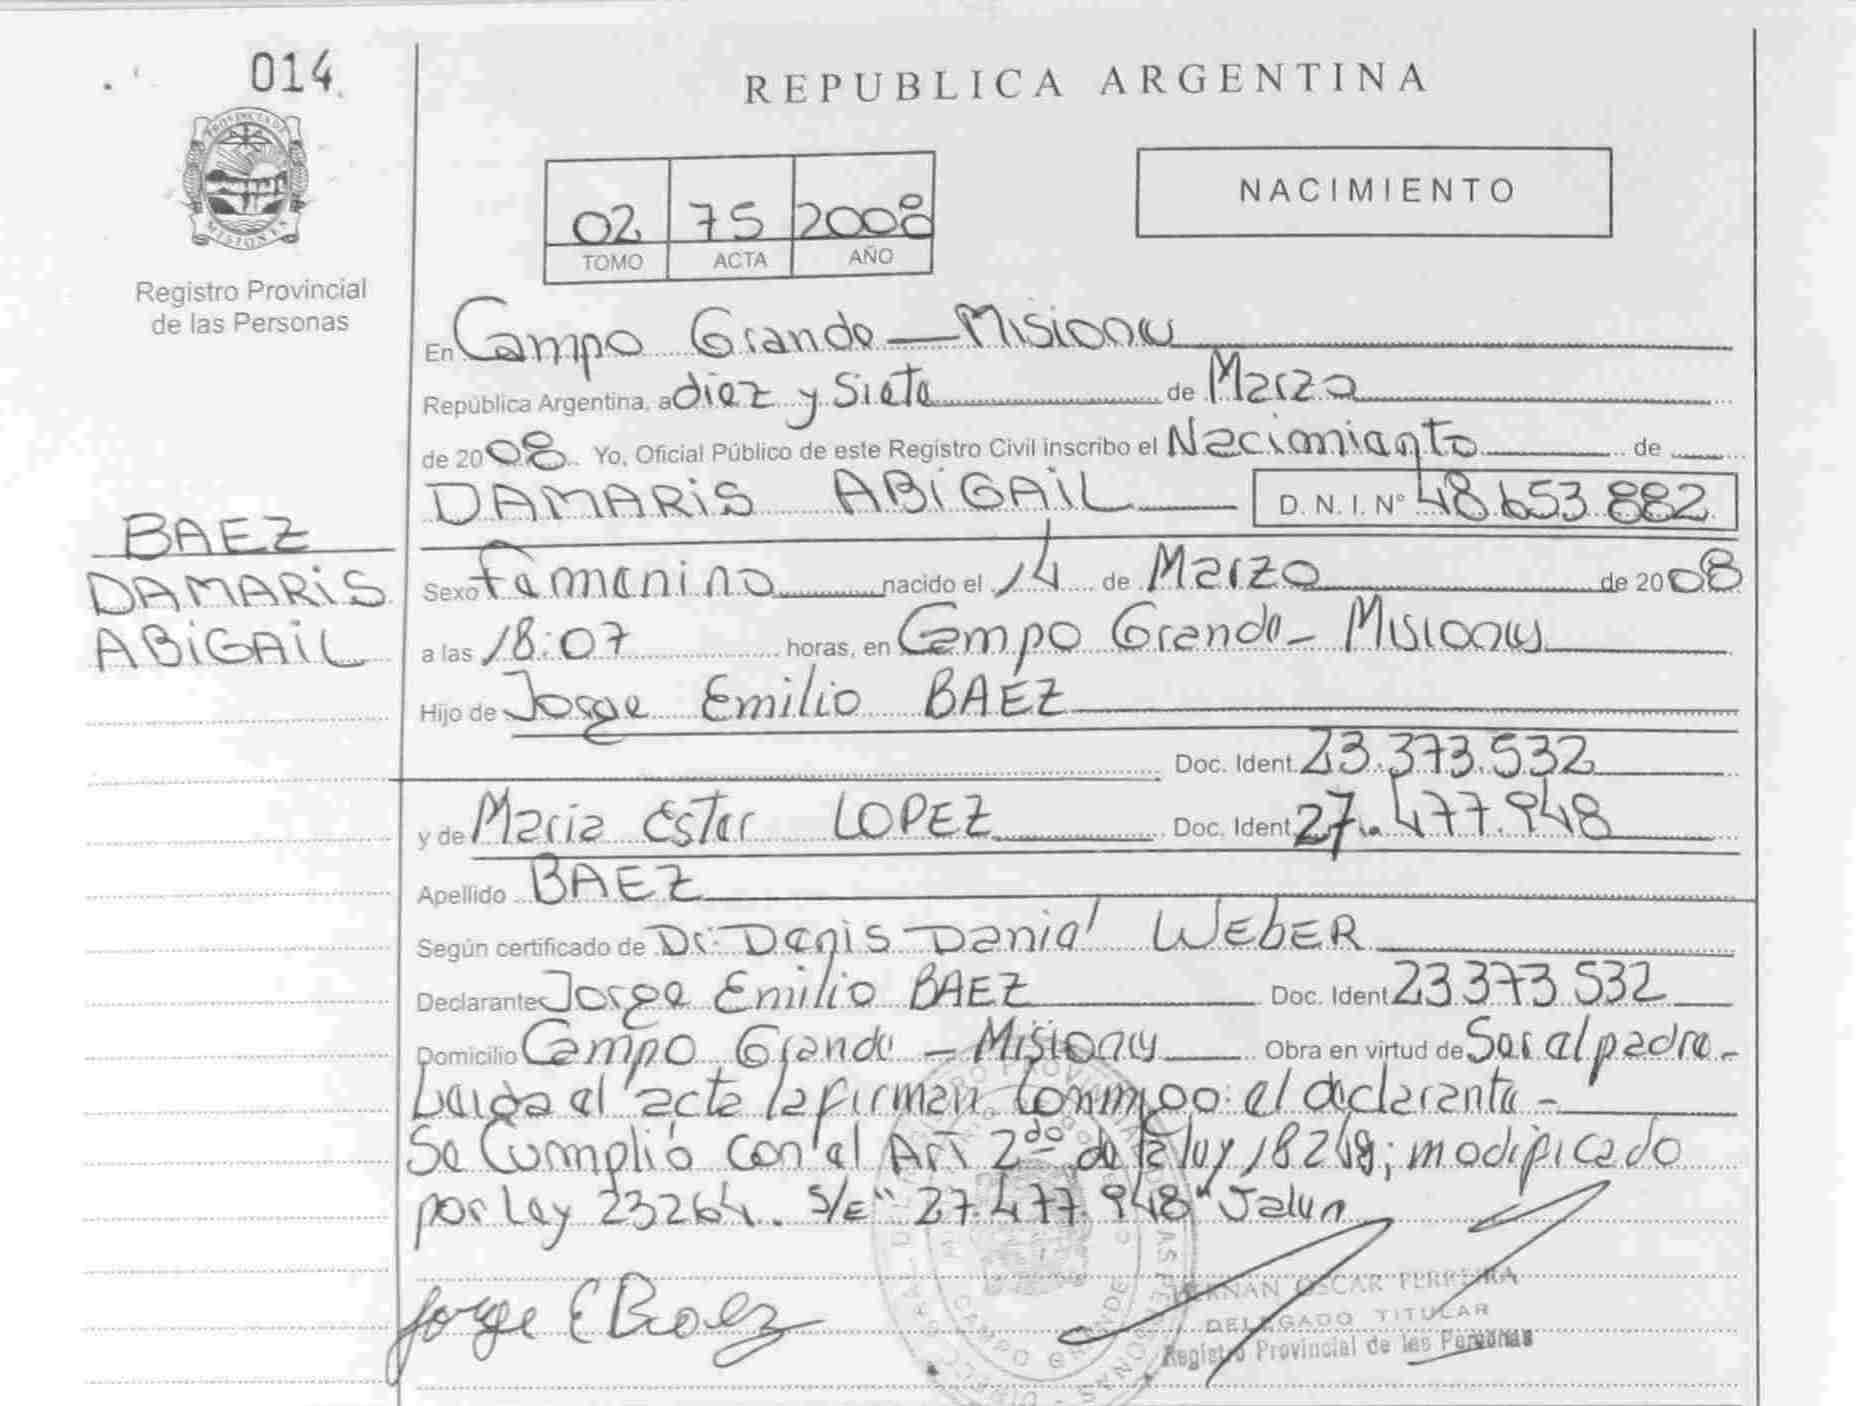 014
PROVINCIA DE
MISIONES
Registro Provincial
de las Personas
REPUBLICA ARGENTINA
02 75 2008
TOMO ACTA AÑO
NACIMIENTO
En Campo Grande - Misiones
República Argentina, a diez y siete de Marzo
de 2008. Yo, Oficial Público de este Registro Civil inscribo el Nacimiento de
DAMARiS ABiGAiL D. N. I. Nº 48.653.882
BAEZ
DAMARiS
ABiGAiL
Sexo femenino nacido el 14 de Marzo de 2008
a las 18:07 horas, en Campo Grande - Misiones
Hijo de Jorge Emilio BAEZ
Doc. Ident. 23.373.532
y de Maria Ester LOPEZ Doc. Ident. 27.477.948
Apellido BAEZ
Según certificado de Dr. Denis Daniel WEbER
Declarante Jorge Emilio BAEZ Doc. Ident 23.373.532
Domicilio Campo Grande - Misiones Obra en virtud de Ser el padre -
Leida el acta la firman conmigo: el declarante -
Se Cumplió con el Art 2do de la ley 18248; modificado
por Ley 23264. S/E "27.477.948" Valen
Jorge E Baez
CAMPO GRANDE
OSCAR FERREIRA
DELEGADO TITULAR
Registro Provincial de las Personas